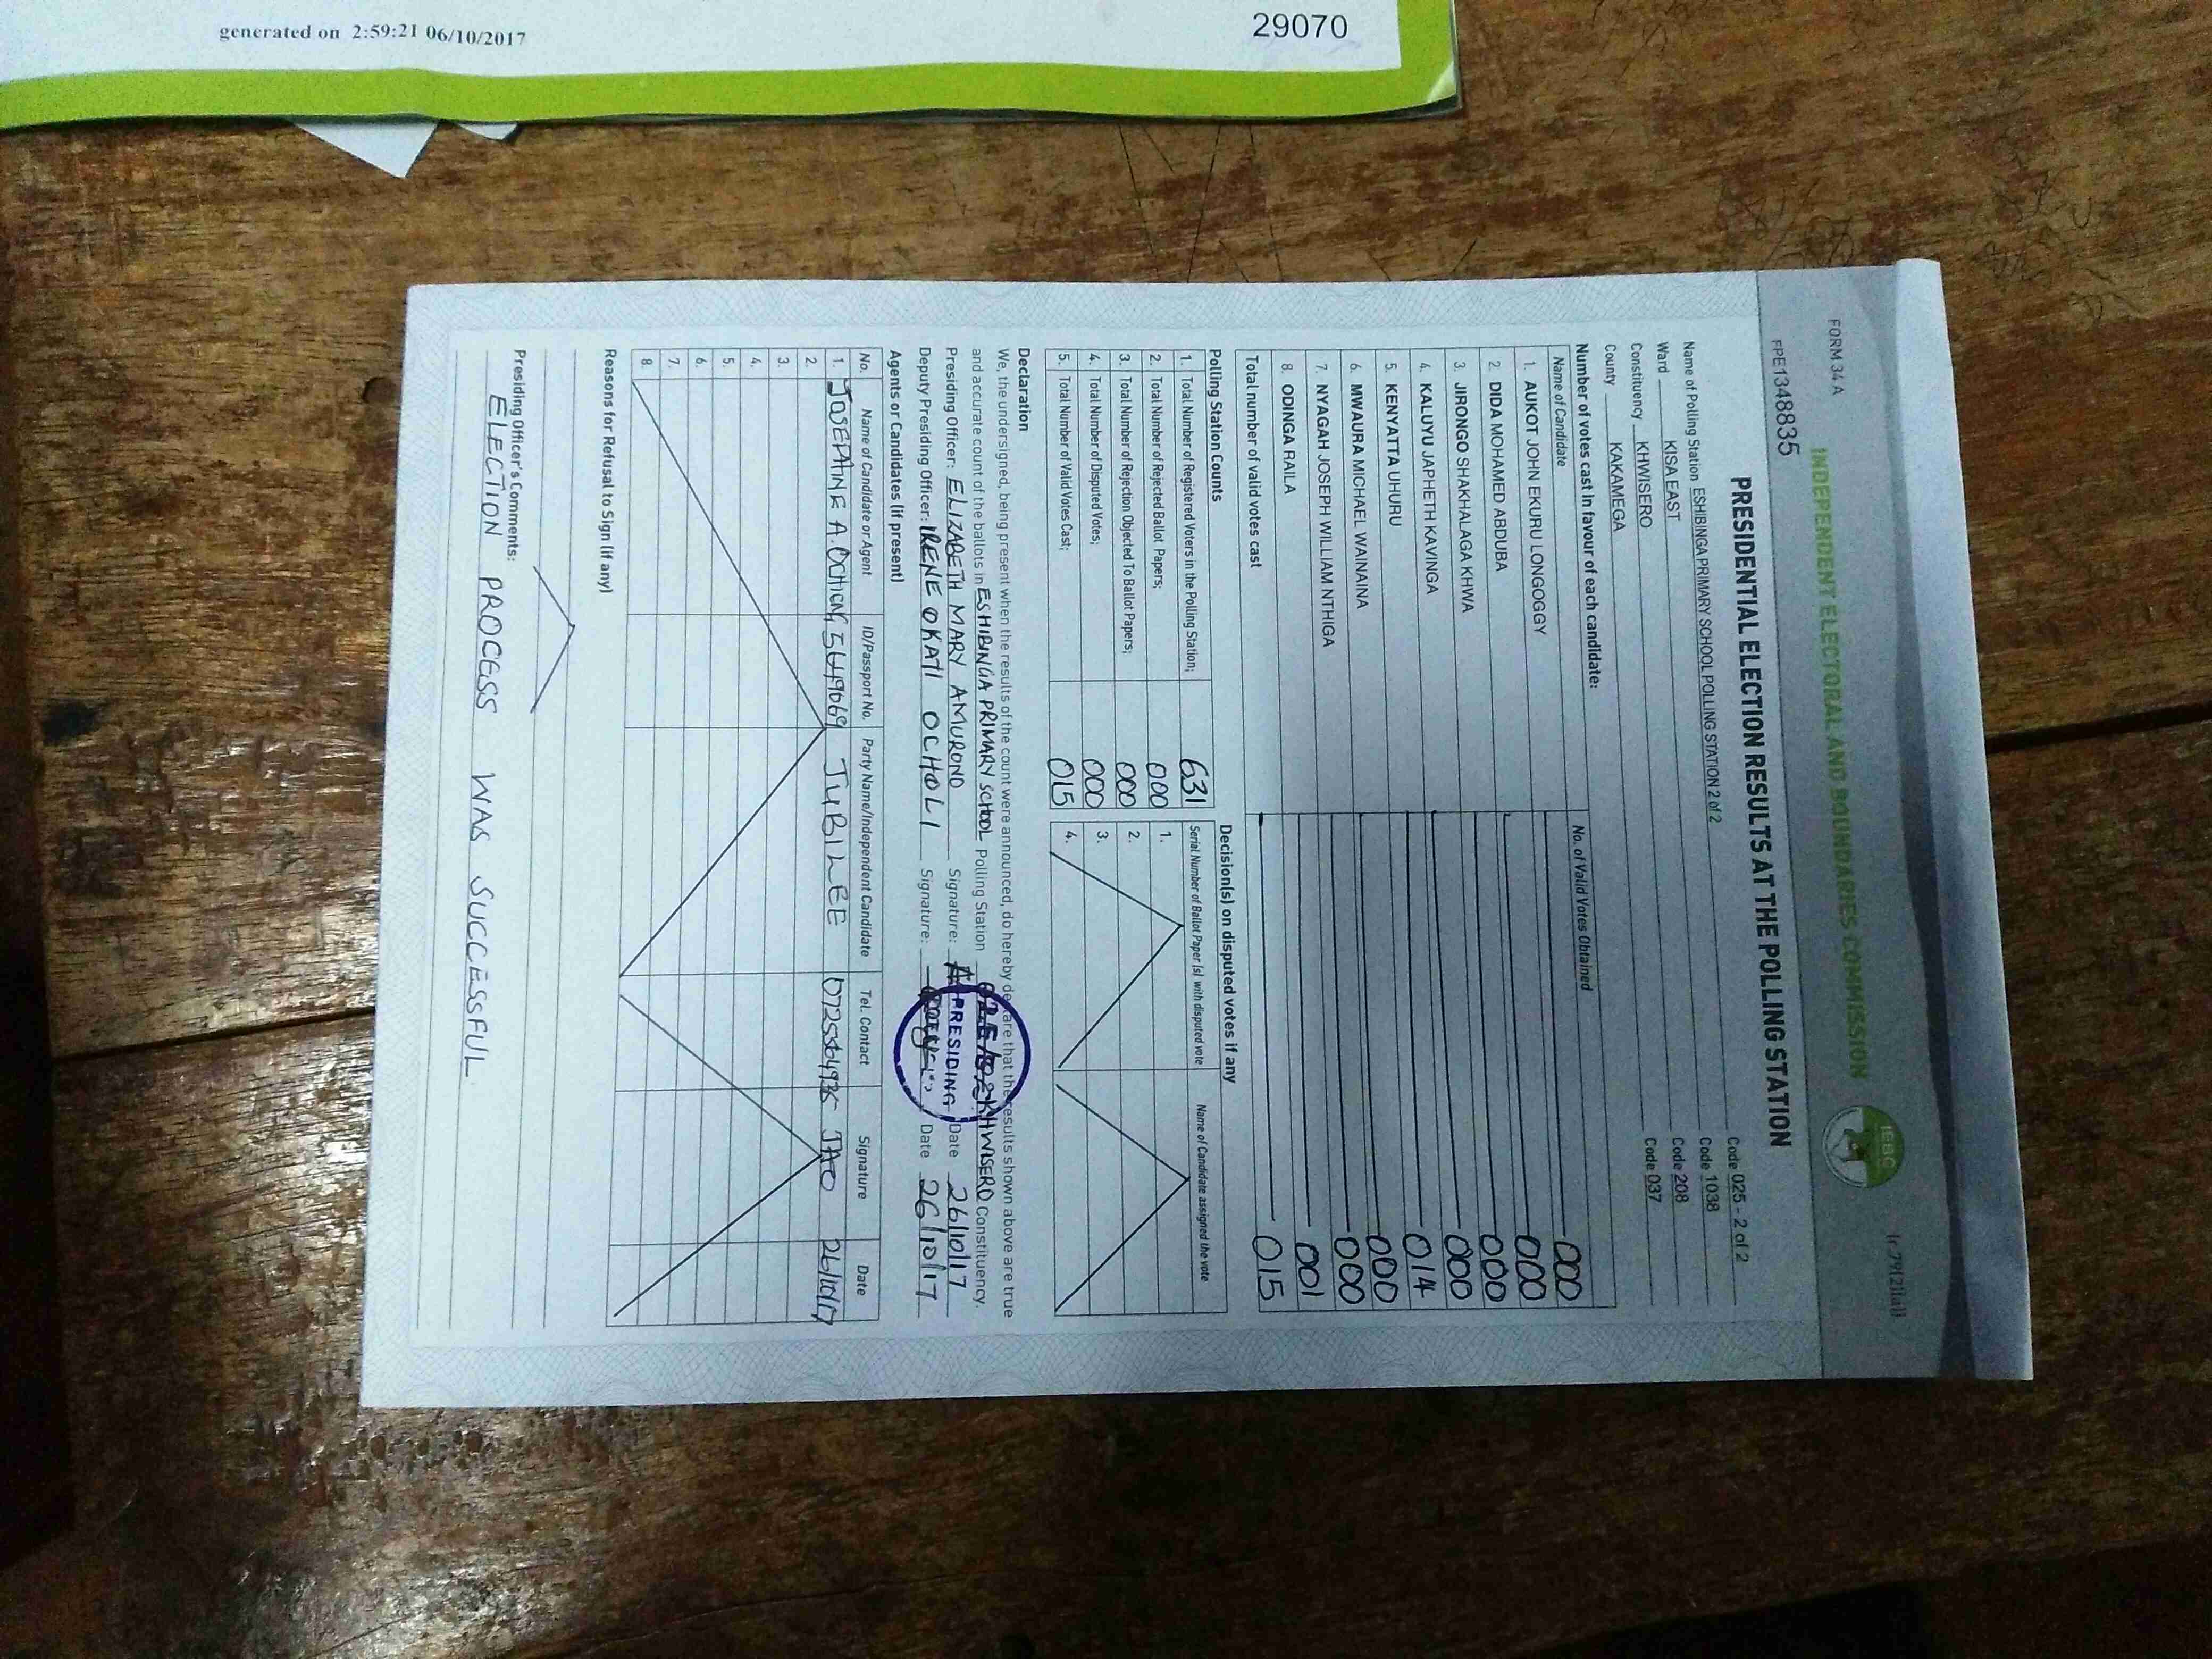 generated on 2:59:21 06/10/2017
29070
FORM 34 A
(r 79(2)(a))
INDEPENDENT ELECTORAL AND BOUNDARIES COMMISSION
IEBC
FPE1348835
PRESIDENTIAL ELECTION RESULTS AT THE POLLING STATION
Name of Polling Station ESHIBINGA PRIMARY SCHOOL POLLING STATION 2 of 2 Code 025 - 2 of 2
Ward KISA EAST Code 1038
Constituency KHWISERO Code 208
County KAKAMEGA Code 037
Number of votes cast in favour of each candidate:
Name of Candidate No. of Valid Votes Obtained
1. AUKOT JOHN EKURU LONGOGGY 000
2. DIDA MOHAMED ABDUBA 000
3. JIRONGO SHAKHALAGA KHWA 000
4. KALUYU JAPHETH KAVINGA 000
5. KENYATTA UHURU 014
6. MWAURA MICHAEL WAINAINA 000
7. NYAGAH JOSEPH WILLIAM NTHIGA 000
8. ODINGA RAILA 001
Total number of valid votes cast 015
Polling Station Counts
1. Total Number of Registered Voters in the Polling Station; 631
2. Total Number of Rejected Ballot Papers; 000
3. Total Number of Rejection Objected To Ballot Papers; 000
4. Total Number of Disputed Votes; 000
5. Total Number of Valid Votes Cast; 015
Decision(s) on disputed votes if any
Serial Number of Ballot Paper (s) with disputed vote Name of Candidate assigned the vote
1.
2.
3.
4.
Declaration
We, the undersigned, being present when the results of the count were announced, do hereby declare that the results shown above are true
and accurate count of the ballots in ESHIBINGA PRIMARY SCHOOL Polling Station KHWISERO Constituency.
Presiding Officer: ELIZABETH MARY AMUROND Signature: PRESIDING Date 26/10/17
Deputy Presiding Officer: IRENE OKATI OCHOLI Signature: Date 26/10/17
Agents or Candidates (if present)
No. Name of Candidate or Agent ID/Passport No. Party Name/Independent Candidate Tel. Contact Signature Date
1. JOSEPHINE A. JUBILEE JAO 26/10/17
2.
3.
4.
5.
6.
7.
8.
Reasons for Refusal to Sign (if any)
Presiding Officer's Comments:
ELECTION PROCESS WAS SUCCESSFUL